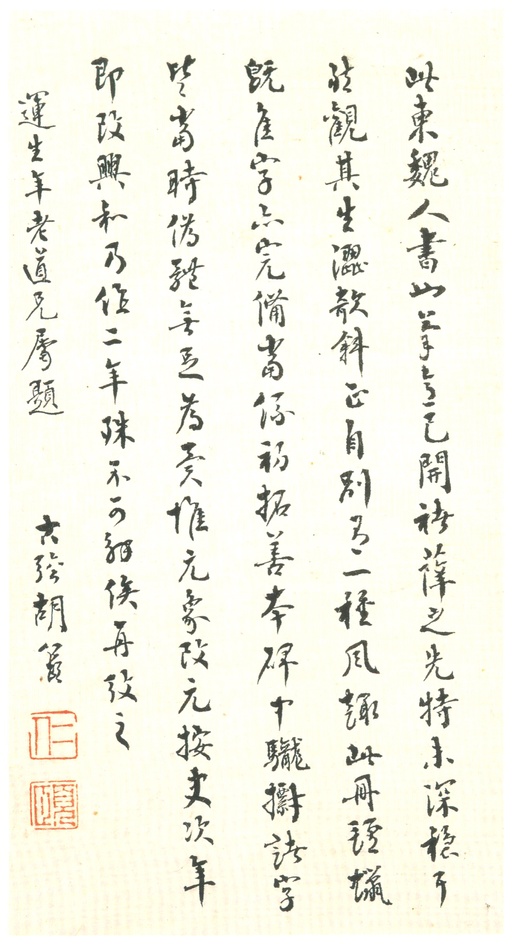 此東魏人書也筆意已開褚薛之先特未深穩耳
然觀其生澀欹斜正自別有一種風趣此冊氈蠟
既佳字亦完備當係初拓善本碑中諸字
皆當時偽體無足為責惟元象改元按史次年
即改興和乃作二年殊不可解俟再攷之
運生年老道兄屬題
胡